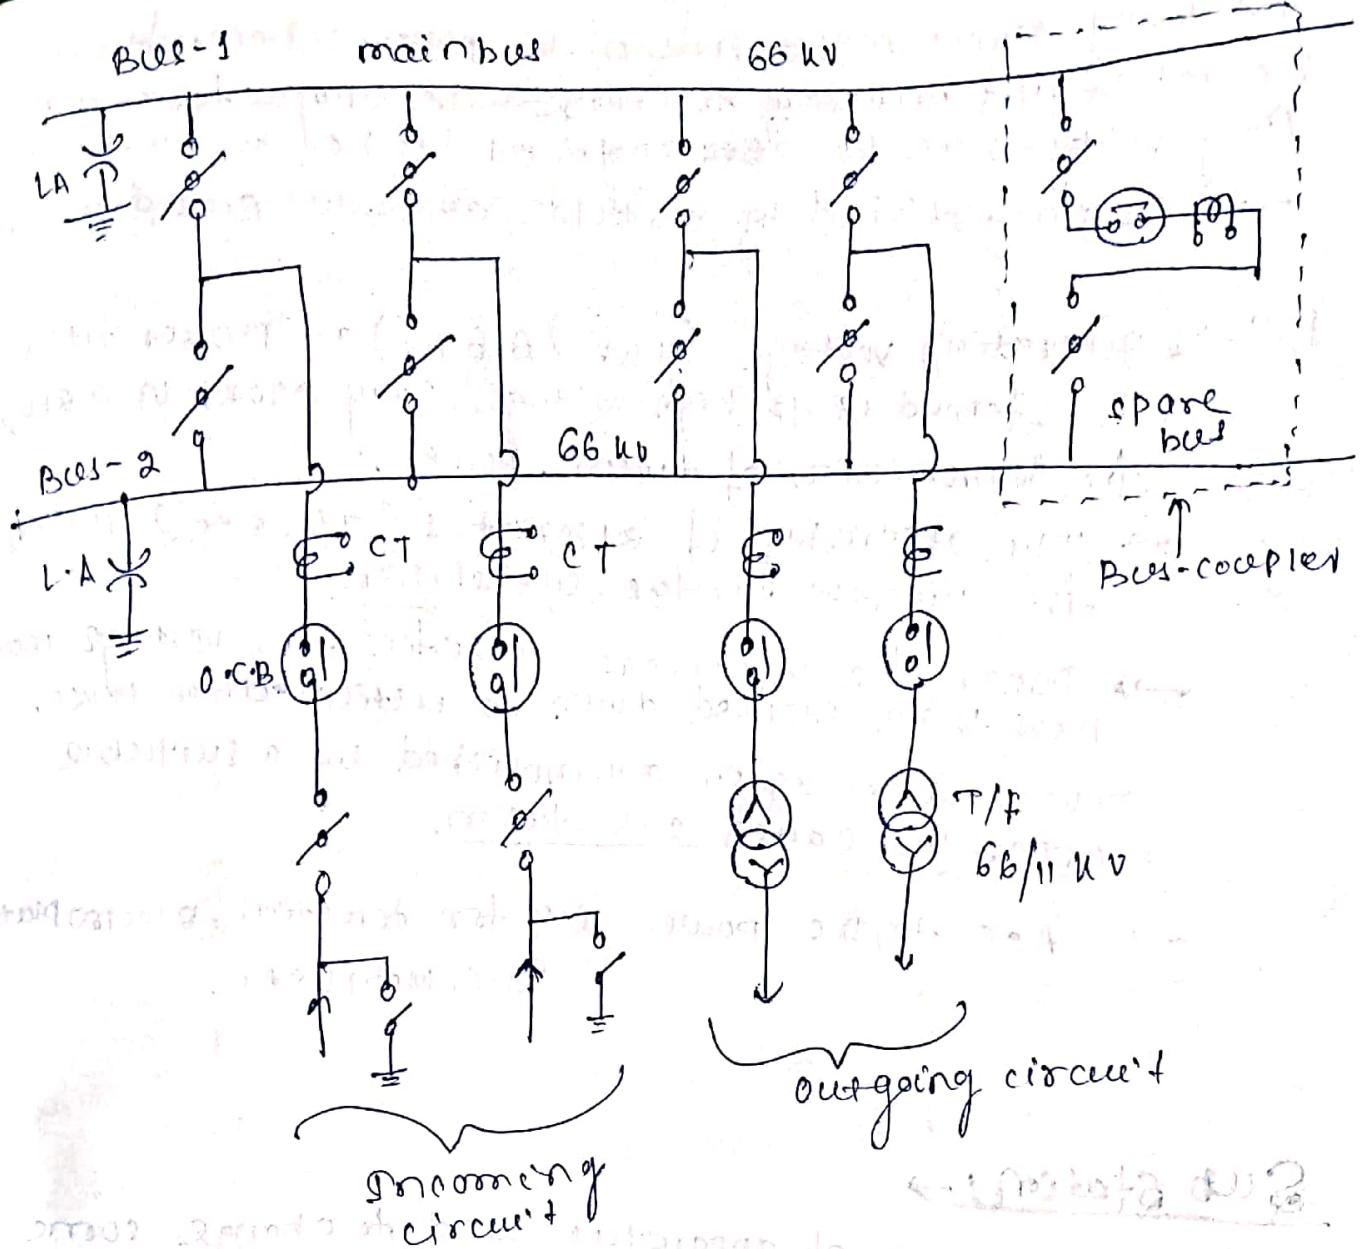 Bus-1 main bus 66 kV
LA
spare
bus
66 kV
Bus-2
L.A
CT
CT
Bus-coupler
O.C.B
T/F
66/11 kV
outgoing circuit
Incoming
circuit